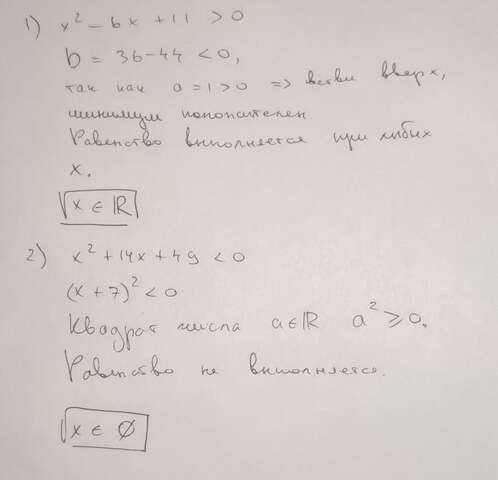 1) x² - 6x + 11 > 0
b = 36-44 < 0,
так как a = 1 > 0 => ветви вверх,
минимум положителен.
Равенство выполняется при любых
x.
x ∈ ℝ
2) x² + 14x + 49 < 0
(x + 7)² < 0
Квадрат числа a∈ℝ a² ≥ 0.
Равенство не выполняется.
x ∈ ∅